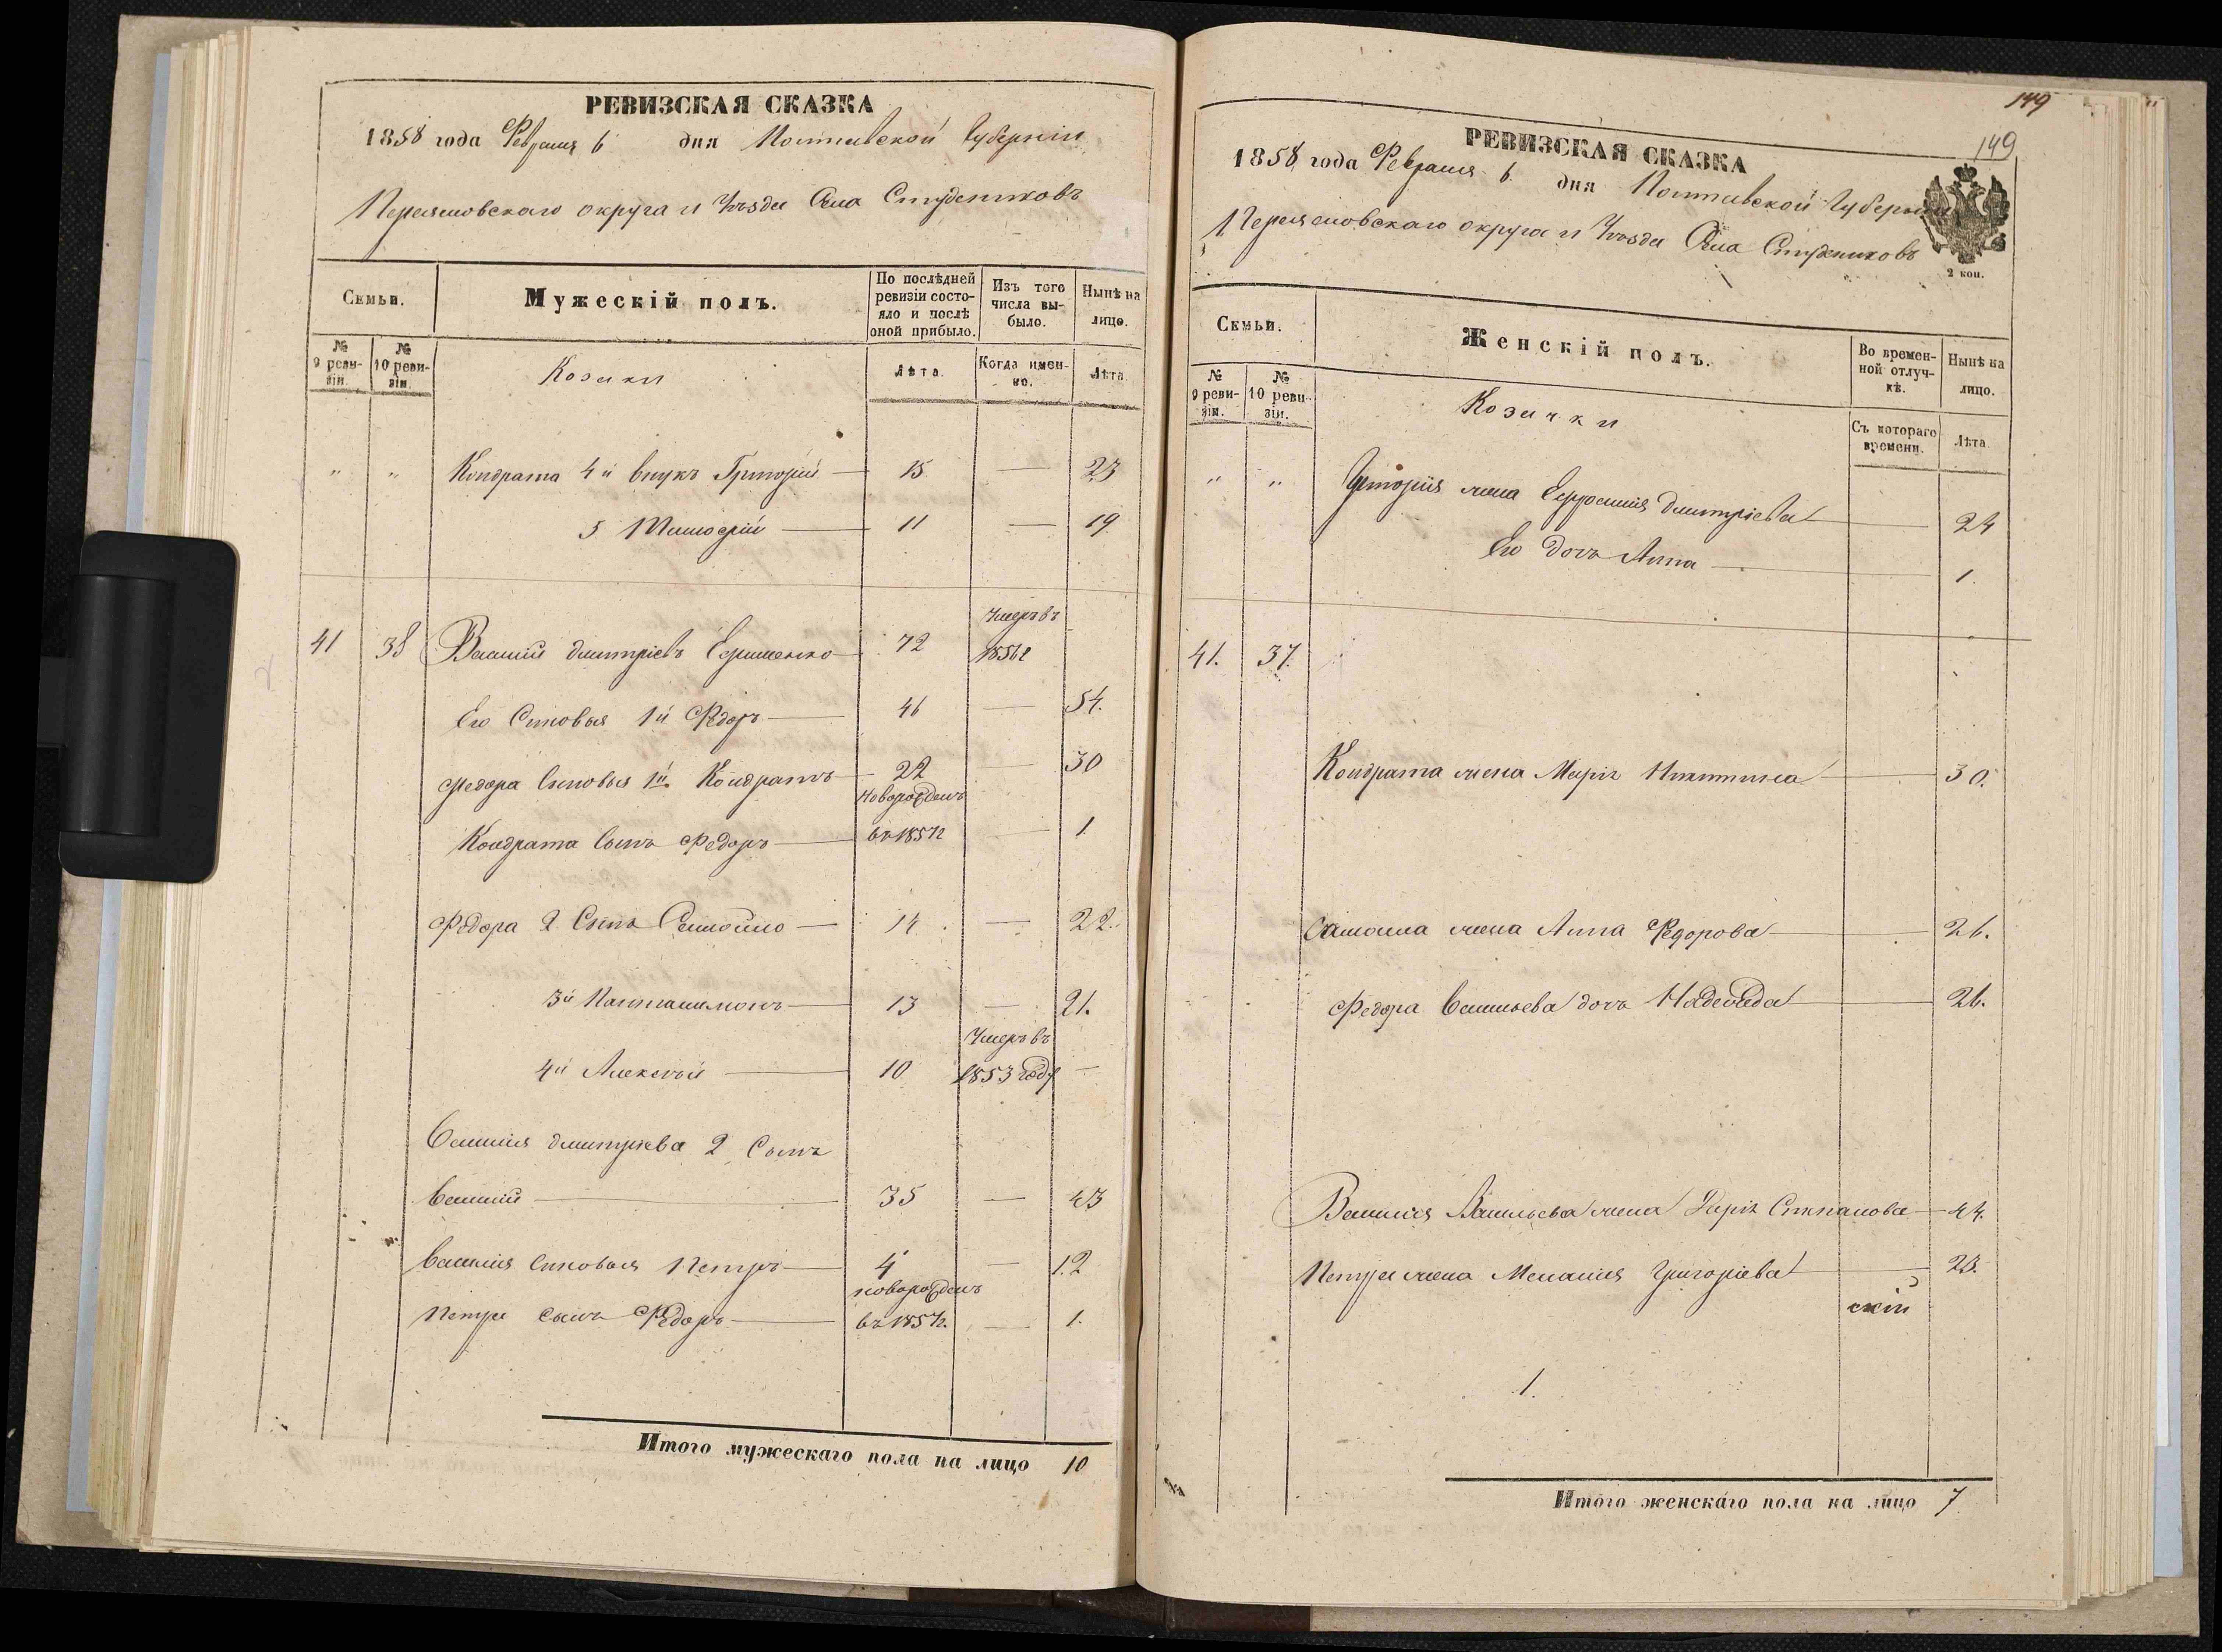 РЕВИЗСКАЯ СКАЗКА
1858 года Февраля 6 дня Полтавской Губерніи
Переясловскаго округа и Уѣзда Села Студениковъ
Семьи.
Мужескій полъ.
По послѣдней ревизіи состояло и послѣ оной прибыло.
Изъ того числа выбыло.
Нынѣ на лицо.
№ 9 ревизіи.
№ 10 ревизіи.
Козаки
Лѣта.
Когда именно.
Лѣта.
" " Кондрата 4й внукъ Григорій — 15 — 23
5 Тимофей — 11 — 19
Умеръ въ
41 38 Василій Дмитріевъ Ефименко 72 1856 г
Его Сыновья 1й Федоръ — 46 — 54.
Федора Сыновья 1й Кондратъ — 22 — 30
Новорожденъ
Кондрата Сынъ Федоръ — въ 1857 г — 1
Федора 2 Сынъ Самойло — 14 — 22.
3й Пантелимонъ — 13 — 21.
Умеръ въ
4й Алексѣй — 10 1853 году —
Василія Дмитріева 2 Сынъ
Василій — 35 — 43
Василія Сыновья Петръ — 4 — 12
новорожденъ
Петра Сынъ Федоръ — въ 1857 г. — 1.
Итого мужескаго пола на лицо 10
149
149
РЕВИЗСКАЯ СКАЗКА
1858 года Февраля 6 дня Полтавской Губерніи
Переясловскаго округа и Уѣзда Села Студениковъ
2 коп.
Семьи.
Женскій полъ.
Во временной отлучкѣ.
Нынѣ на лицо.
№ 9 ревизіи.
№ 10 ревизіи.
Козачки
Съ котораго времени.
Лѣта.
" " Григорія жена Ефросинія Дмитріева — 24
Его дочь Анна — 1
41. 37.
Кондрата жена Марія Никитина — 30.
Самоила жена Анна Федорова — 26.
Федора Васильева дочь Надежда — 26.
Василія Васильева жена Дарія Степанова — 44.
Петра жена Меланія Григоріева — 23.
скій
1.
Итого женскаго пола на лицо 7